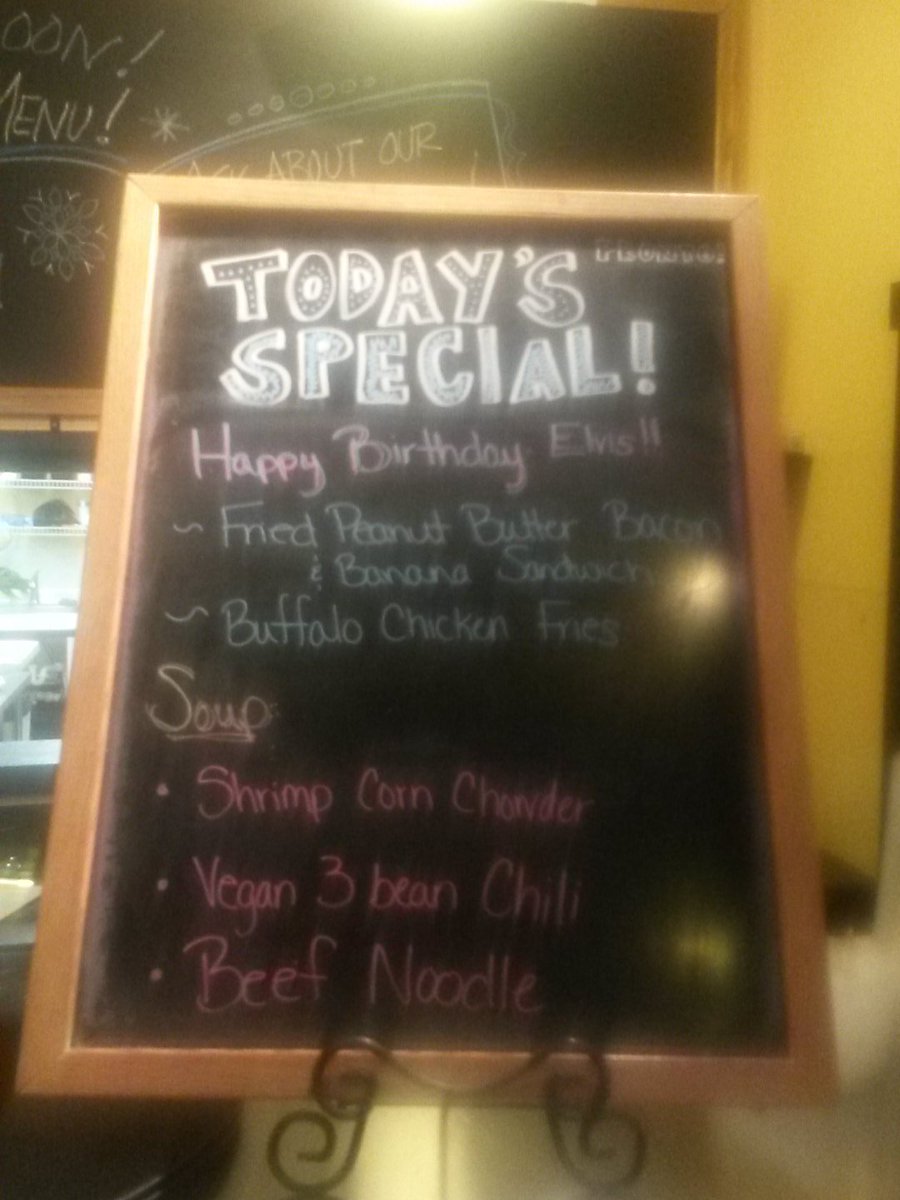 OON!
MENU!
ASK ABOUT OUR
TODAY'S
SPECIAL!
Happy Birthday Elvis!!
~ Fried Peanut Butter Bacon
& Banana Sandwich
~ Buffalo Chicken Fries
Soup
• Shrimp Corn Chowder
• Vegan 3 bean Chili
• Beef Noodle